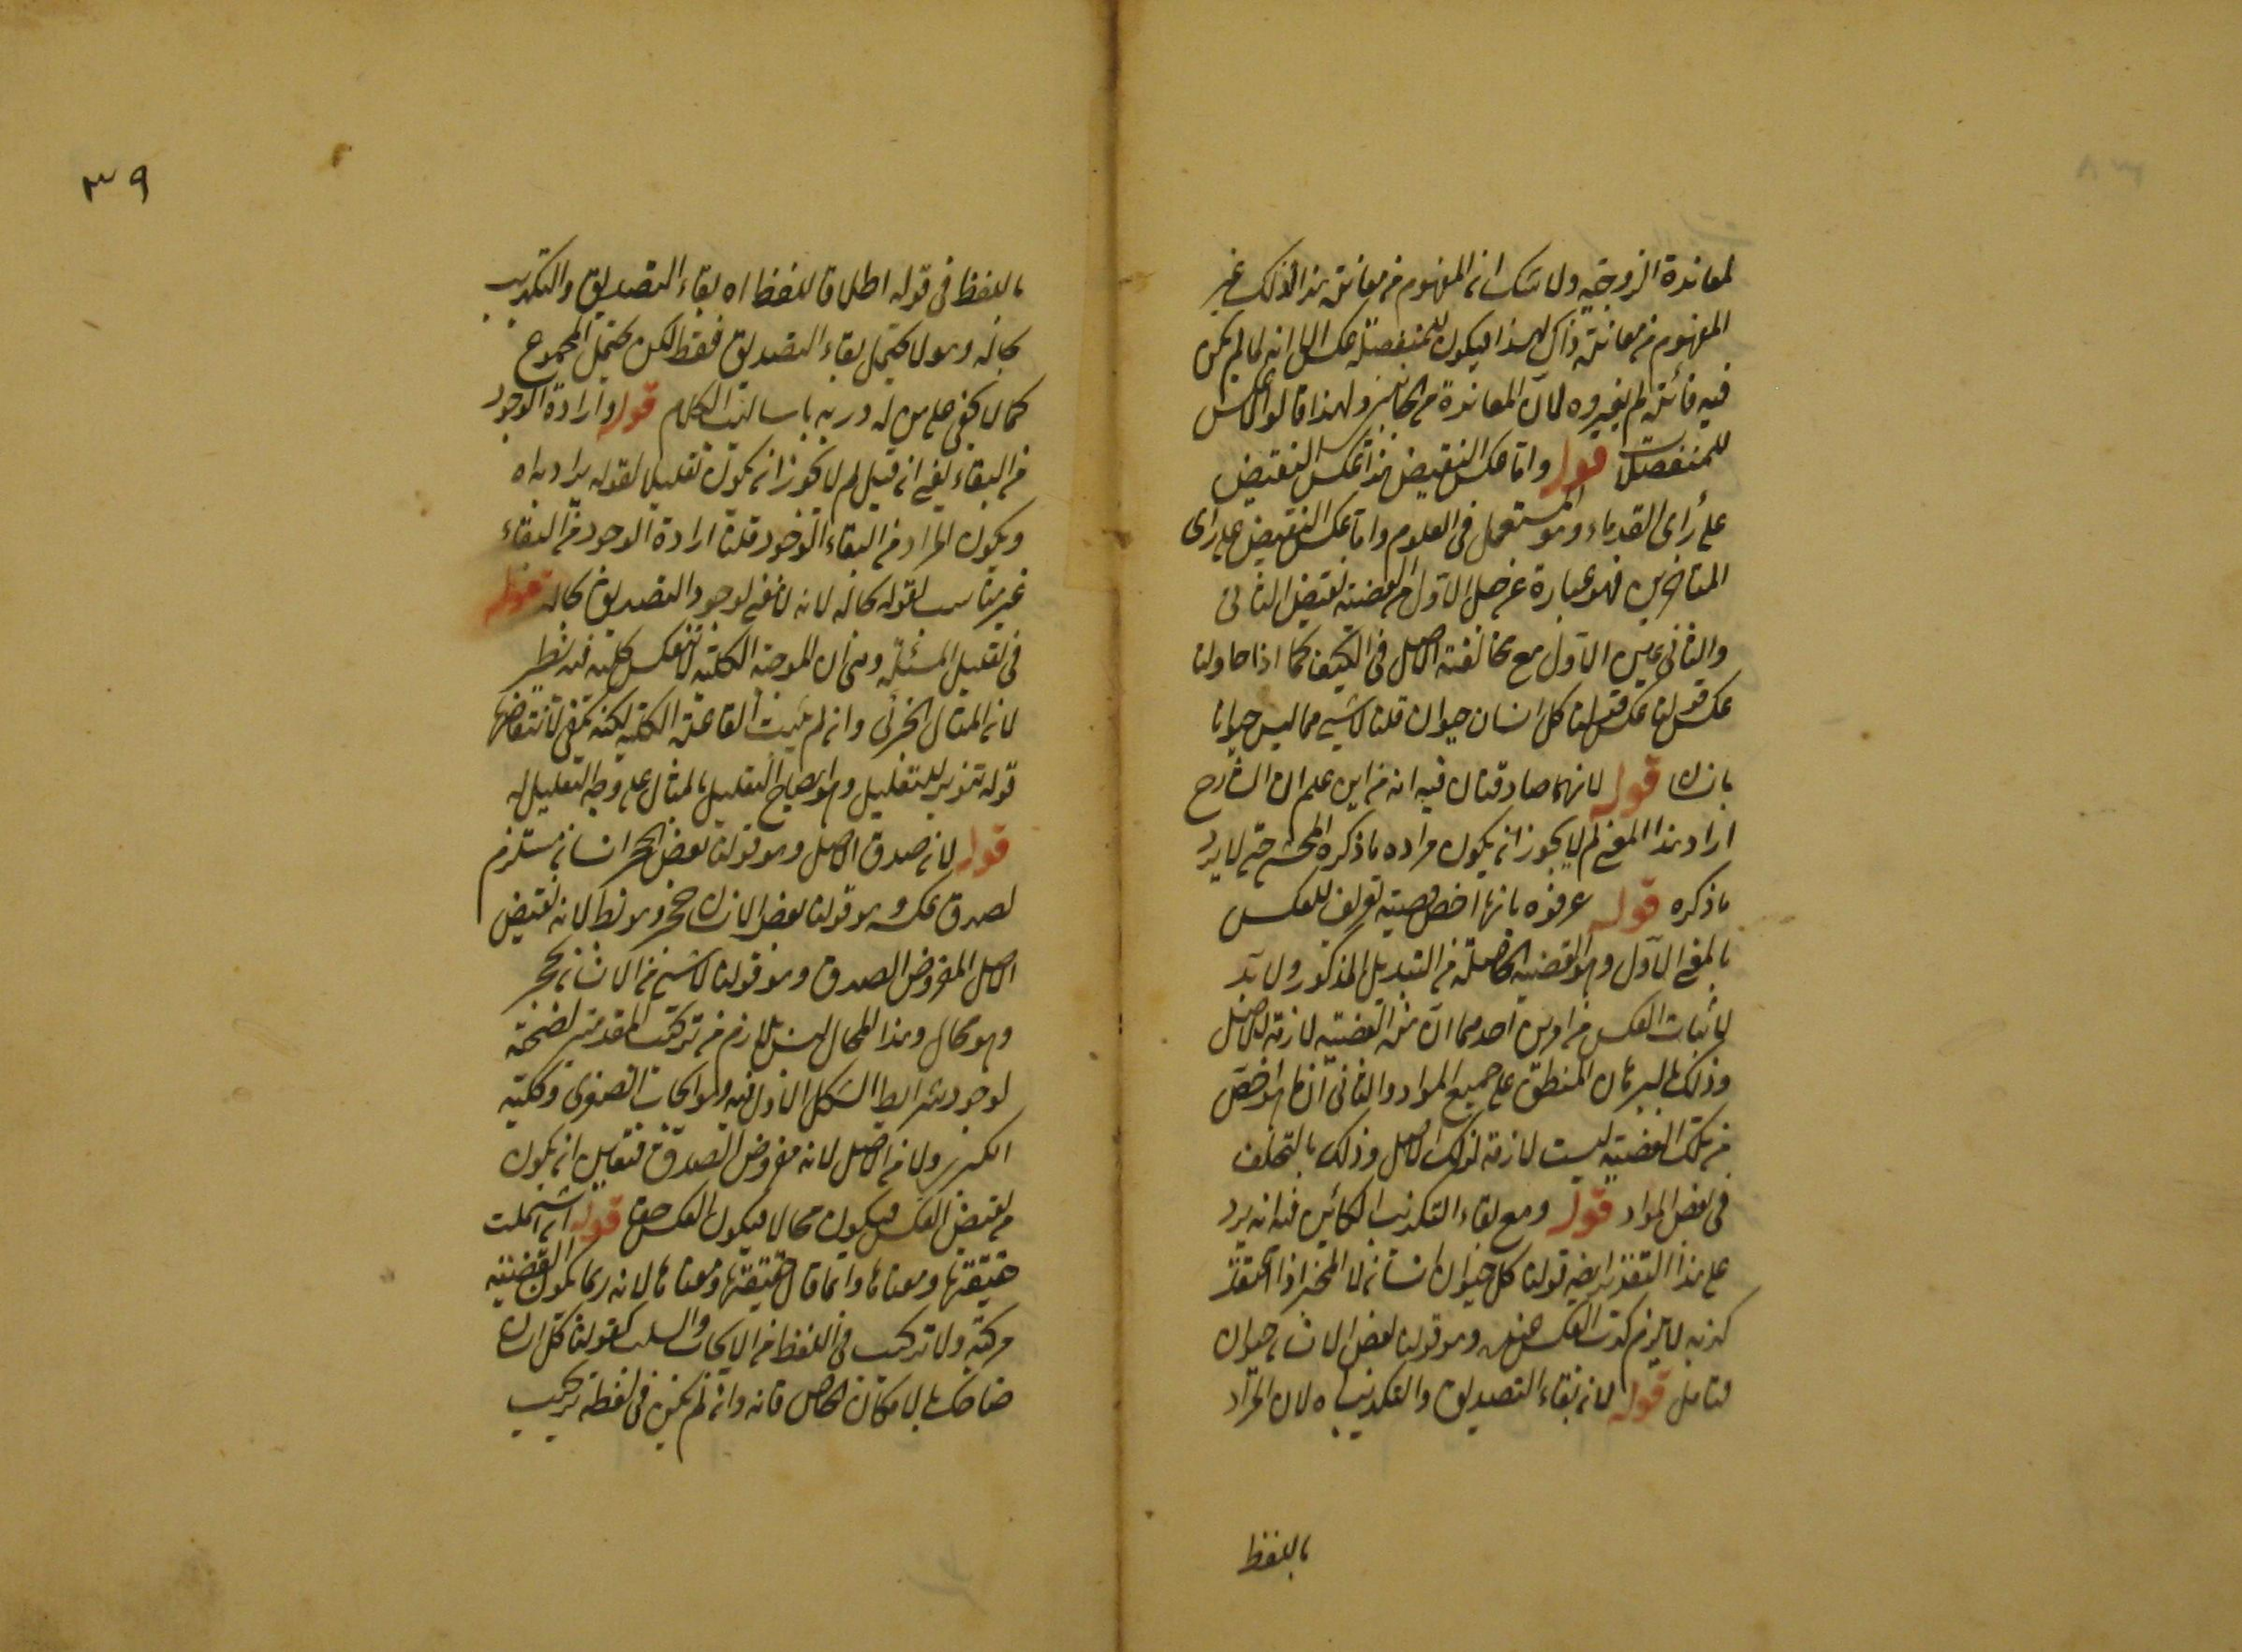 لمعاندة الزوجية ولا شك ان المفهوم من معاندة هذا لذلك غير
المفهوم من معاندة ذاك لهذا فيكون للمنفصلة عكس الا انه لما لم يكن
فيه فائدة لم يعتبروه لان المعاندة من الجانبين ولهذا قالوا لا عكس
للمنفصلات قوله واما عكس النقيض هذا عكس النقيض
على رأى القدماء وهو المستعمل فى العلوم واما عكس النقيض على راى
المتاخرين فهو عبارة عن جعل الاول من القضية نقيض الثانى
والثانى عين الاول مع مخالفة الاصل فى الكيف كما اذا حاولنا
عكس قولنا كل انسان حيوان قلنا لا شيء مما ليس حيوانا
بانسان قوله لانهما صادقتان فيه انه من اين علم ان الشارح
اراد هذا المعنى لم لا يجوز ان يكون مراده ما ذكره المحشى حتى لا يرد
ما ذكره قوله عرفوه بانها اخص قضية تعريف للعكس
بالمعنى الاول وهو القضية الحاصلة من التبديل المذكور ولا بد
لاثبات العكس من امرين احدهما ان هذه القضية لازمة للاصل
وذلك بالبرهان المنطبق على جميع المواد والثانى ان ما هو اخص
من تلك القضية ليست لازمة لذلك الاصل وذلك بالتخلف
فى بعض المواد قوله ومع بقاء التكذيب الكائن فيه انه يرد
على هذا التقدير ايضا قولنا كل حيوان انسان لان المخبر اذا اعتقد
كذبه لا يلزم كذب العكس عنه وهو قولنا بعض الانسان حيوان
فتامل قوله لان بقاء التصديق والتكذيب اه لان المراد
باللفظ
٣٩
باللفظ فى قوله اطلاقا للفظ اه بقاء التصديق والتكذيب
بحاله وهو لا يحتمل بقاء التصديق فقط لكن يحتمل المجموع
كما لا يخفى على من له دربة باساليب الكلام قوله وارادة الوجود
من البقاء يعنى ان قيل لم لا يجوز ان يكون تعليلا لقوله يراد به اه
ويكون المراد من البقاء الوجود قلنا ارادة الوجود من البقاء
غير مناسب لقوله بحاله لانه لا معنى لوجود التصديق بحاله قوله
فى تعليل المسئلة وهى ان الموجبة الكلية لا تنعكس كلية فيه نظر
لان المثال الجزئى وان لم يثبت القاعدة الكلية لكنه يكفى لانتقاضها
قوله تنوير للتعليل وهو ايضاح التعليل بالمثال على وجه التعليل له
قوله لان صدق الاصل وهو قولنا بعض الحجر انسان مستلزم
لصدق عكسه وهو قولنا بعض الانسان حجر وهو بط لانه نقيض
الاصل المفروض الصدق وهو قولنا لا شىء من الانسان بحجر
وهو محال وهذا المحال ليس بلازم من تركيب المقدمتين لصحته
لوجود شرائط الشكل الاول فيه وهو ايجاب الصغرى وكلية
الكبرى ولا من الاصل لانه مفروض الصدق فتعين ان يكون
من نقيض العكس فيكون محالا فيكون العكس حقا قوله ان اشتملت
حقيقتها ومعناها وانما قال حقيقتها ومعناها لانه ربما يكون القضية
مركبة ولا تركيب فى اللفظ من الايجاب والسلب كقولنا كل انسان
ضاحك بالامكان الخاص فانه وان لم يكن فى لفظه تركيب